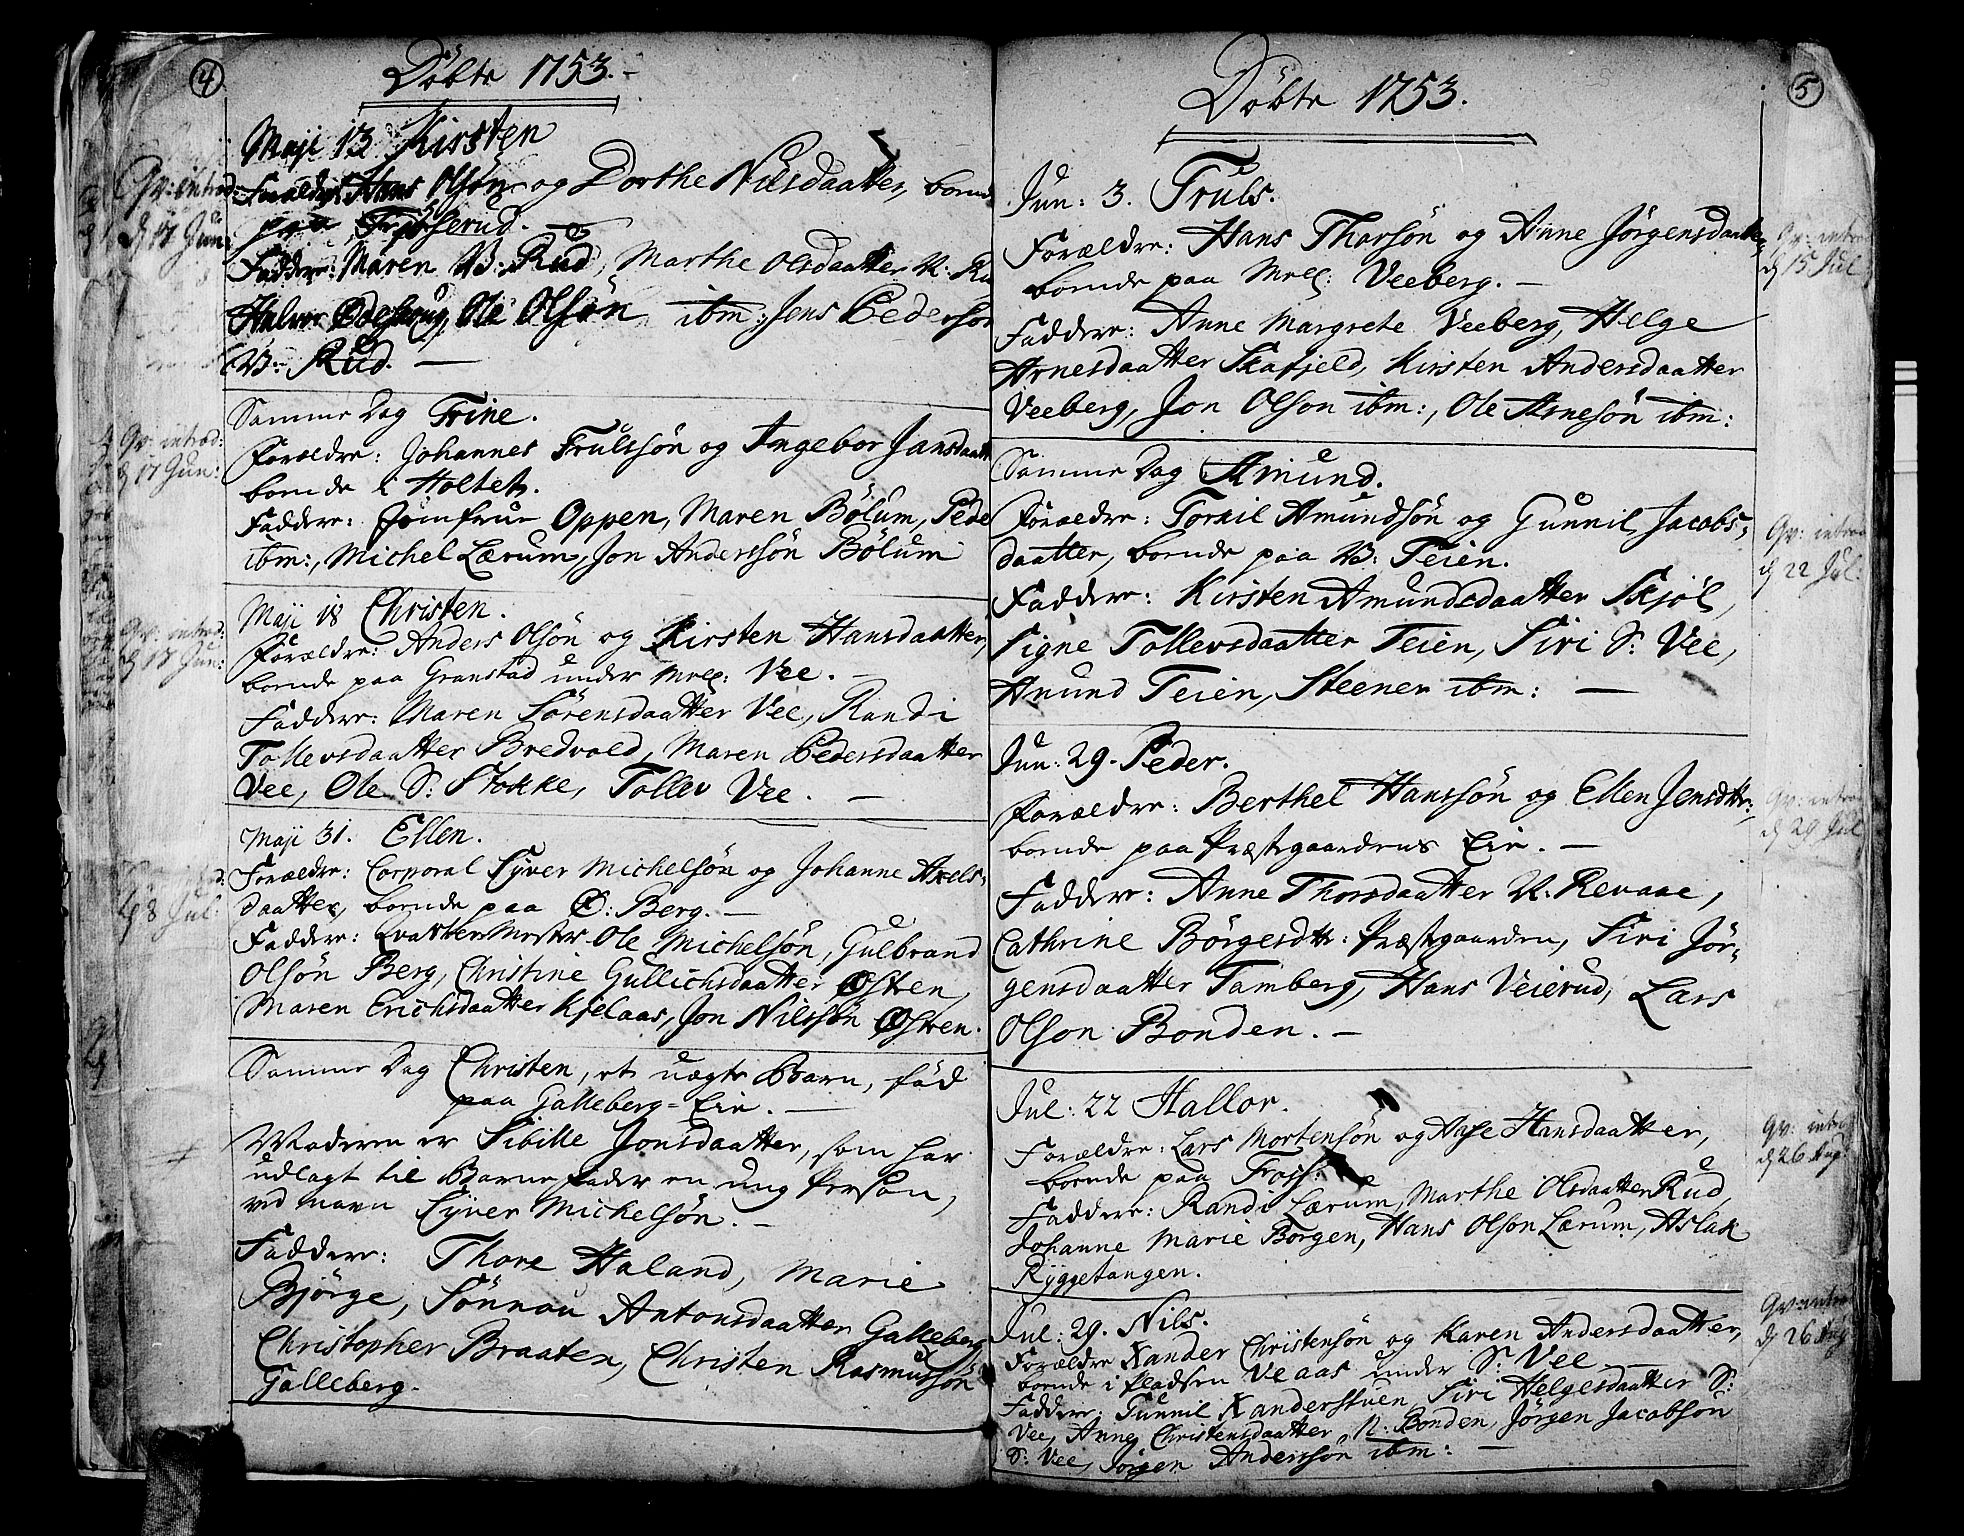 4
Döbte 1753.
Maji 13 Kirsten
Qv: introd:
d 17 Jun:
Forældre Hans Olsön og Dorthe Nilsdaatter, boende
paa
Faddere: Maren V: Rud, Marthe Olsdaatter V: Ru
Halvor Ödeskoug, Ole Olsön ibm:, Jens Pedersön
V: Rud. —
Samme Dag Trine.
Qv: introd:
d 17 Jun:
Forældre: Johannes Trulssön og Ingebor Jansdaatt
boende i Holtet.
Faddere: Jomfrue Oppen, Maren Bölum, Pede
ibm:, Michel Lærum, Jon Anderssön Bölum
Maji 18 Christen.
Qv: introd:
d 18 Jun:
Forældre: Anders Olsön og Kirsten Hansdaatter,
boende paa Granstad under Mell: Vee. —
Faddere: Maren Sörensdaatter Vee, Randi
Tollevsdaatter Bredvold, Maren Pedersdaatter
Vee, Ole S: Stokke, Tollev Vee. —
Maji 31. Ellen.
d 8 Jul:
Forældre: Corporal Syver Michelsön og Johanne Axels-
daatter, boende paa Ö: Berg. —
Faddere: Qvartermester Ole Michelsön, Gulbrand
Olsön Berg, Christine Gullichsdaatter Östen,
Maren Erichsdaatter Kjelaas, Jon Nilssön Östen.
Samme Dag Christen, et uægte Barn, föd
paa Galleberg-Eie. —
Moderen er Sibille Jonsdaatter, som har
udlagt til Barnefader en ung Person,
ved navn Syver Michelsön. —
Faddere: Thore Haland, Marie
Bjørge, Sönnou Antonsdaatter Galleberg
Christopher Braaten, Christen Rasmussön
Galleberg.
5
Döbte 1753.
Jun: 3. Truls.
Forældre: Hans Thorsön og Anne Jörgensdaatter,
boende paa Mell: Veeberg. —
Qv: intro
d 15 Jul
Faddere: Anne Margrete Veeberg, Helge
Arnesdaatter Skafjeld, Kirsten Andersdaatter
Veeberg, Jon Olson ibm:, Ole Arnesön ibm:
Samme Dag Amund.
Forældre: Torkil Amundsön og Gunnil Jacobs-
daatter, boende paa V: Teien.
Qv: intro
d 22 Jul:
Faddere: Kirsten Amundsdaatter Skjöl,
Signe Tollevsdaatter Teien, Siri S: Vee,
Anund Teien, Steener ibm: —
Jun: 29. Peder.
Forældre: Berthel Hanssön og Ellen Jensdtr:,
boende paa Præstegaardens Eie. —
Qv: intro
d 29 Jul
Faddere: Anne Thorsdaatter N: Revaae,
Cathrine Börgesdtr: Præstegaarden, Siri Jör-
gensdaatter Tamberg, Hans Veierud, Lars
Olson Bonden. —
Jul: 22 Hallor.
Forældre: Lars Mortensön og Aase Hansdaatter,
boende paa Foss:
Qv: intro
d 26 Aug
Faddere: Randi Lærum, Marthe Olsdaatter Rud,
Johanne Marie Borgen, Hans Olson Lærum, Aslak
Ryggetangen.
Jul: 29. Nils.
Qv: intro
d 26 Aug
Forældre Xander Christensön og Karen Andersdaatter,
boende i Pladsen Veaas under S: Vee —
Faddere: Gunnil Xanderstuen, Siri Helgesdaatter S:
Vee, Anne Christensdaatter N: Bonden, Jörgen Jacobson
S: Vee, Jörgen Anderssön ibm: —